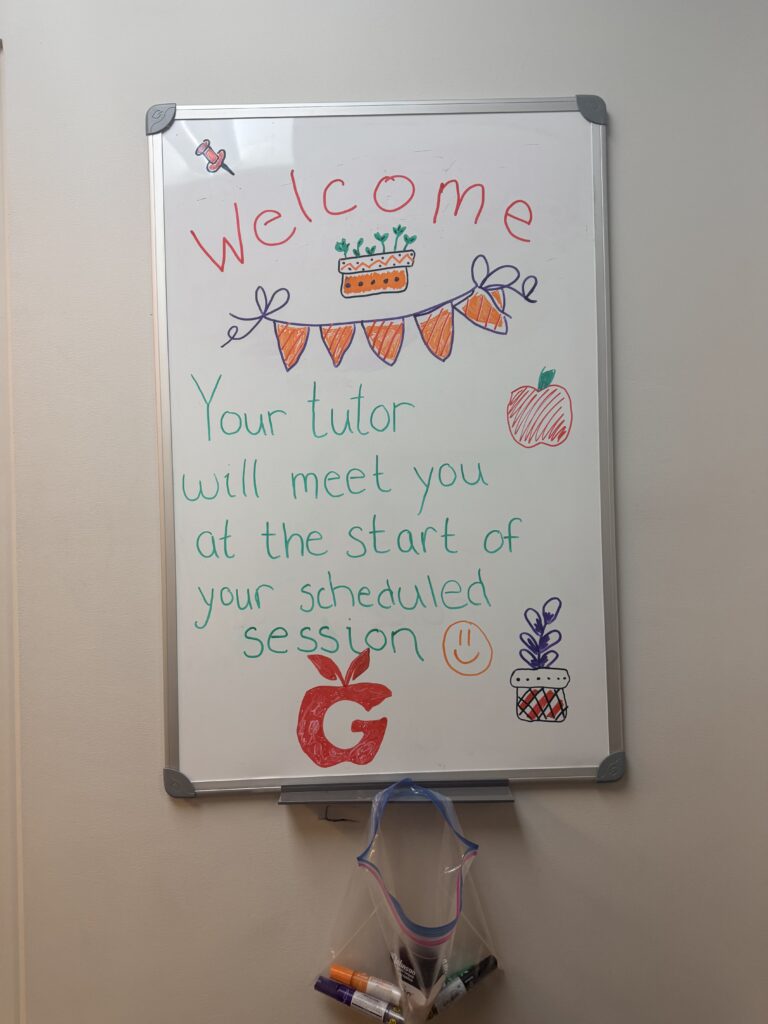 Welcome
Your tutor
will meet you
at the start of
your scheduled
session
G